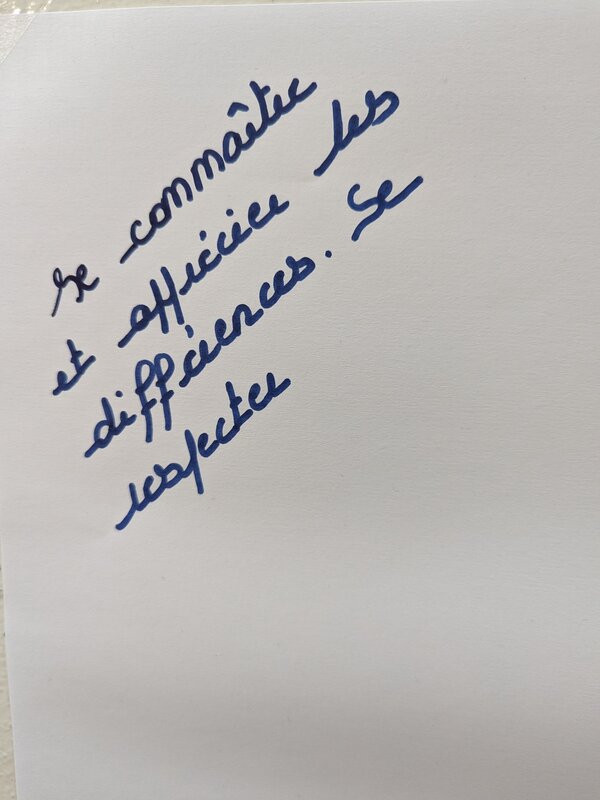 Se connaître
et apprécier les
différences. Se
respecter